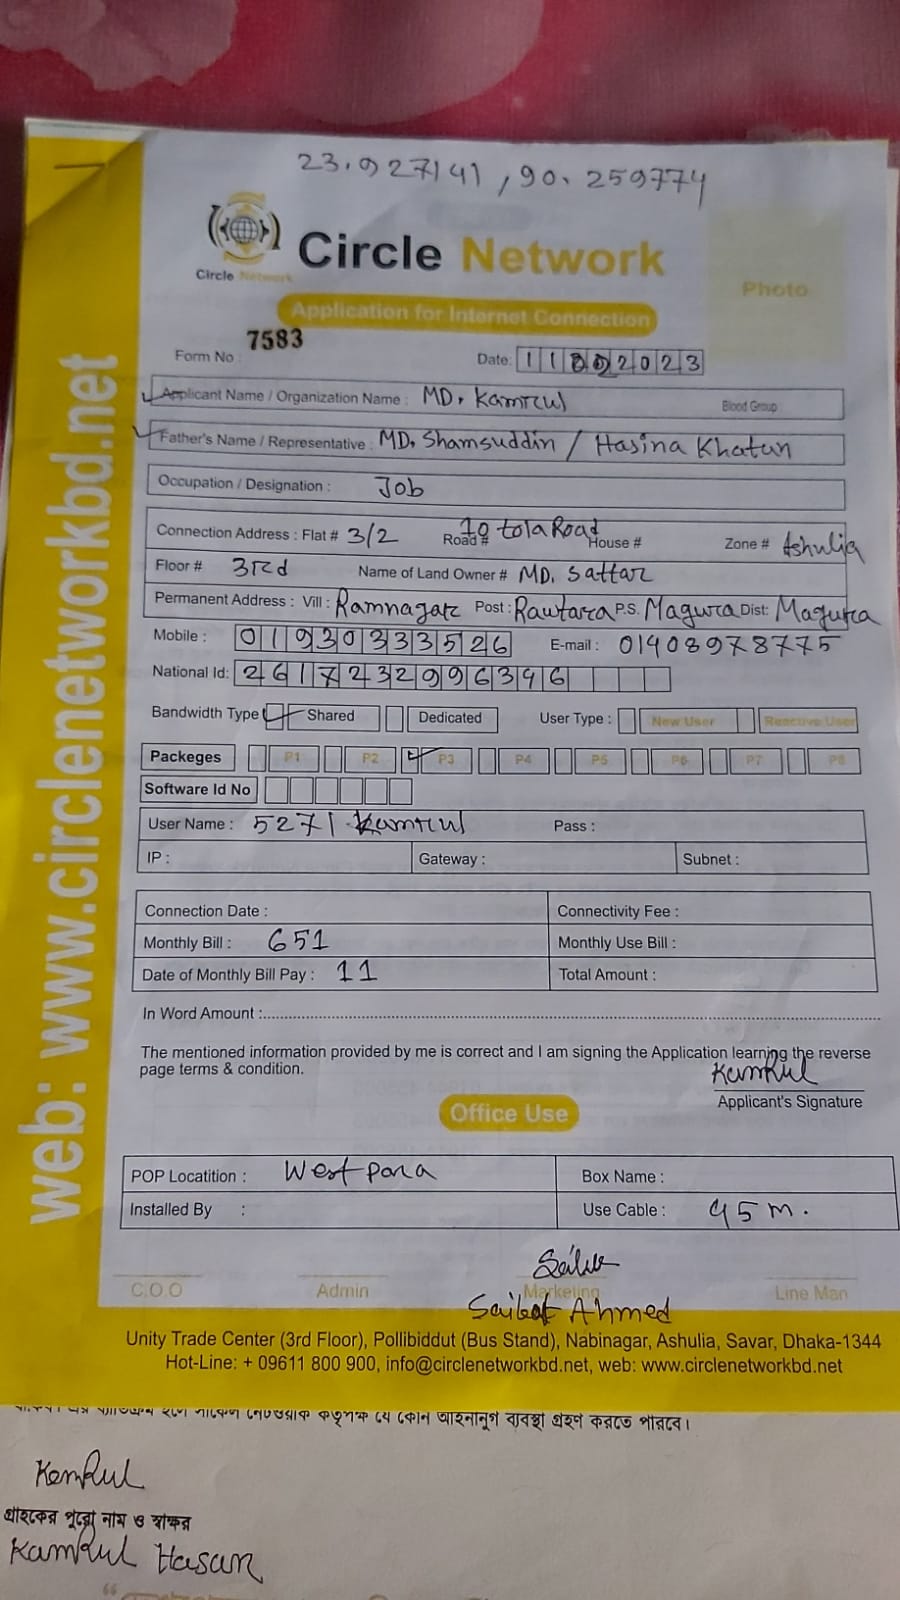 23.927141, 90.259774
Circle Network
Circle Network
Photo
Application for Internet Connection
Form No : 7583
Date: 11 2023
Applicant Name / Organization Name : MD. Kamrul Blood Group
Father's Name / Representative : MD. Shamsuddin / Hasina Khatun
Occupation / Designation : Job
Connection Address : Flat # 3/2 Road # 10 tola Road House # Zone # Ashulia
Floor # 3rd Name of Land Owner # MD. Sattar
Permanent Address : Vill : Ramnagar Post : Rautara P.S. Magura Dist: Magura
Mobile : 01930333526 E-mail : 01408978775
National Id: 2617232996396
Bandwidth Type Shared Dedicated User Type : New User Reactive User
Packeges P1 P2 P3 P4 P5 P6 P7 P8
Software Id No
User Name : 5271 Kamrul Pass :
IP : Gateway : Subnet :
Connection Date : Connectivity Fee :
Monthly Bill : 651 Monthly Use Bill :
Date of Monthly Bill Pay : 11 Total Amount :
In Word Amount :
The mentioned information provided by me is correct and I am signing the Application learning the reverse
page terms & condition.
Kamrul
Applicant's Signature
Office Use
POP Locatition : West para Box Name :
Installed By : Use Cable : 45 m.
C.O.O Admin Marketing Line Man
Saikat Ahmed
Unity Trade Center (3rd Floor), Pollibiddut (Bus Stand), Nabinagar, Ashulia, Savar, Dhaka-1344
Hot-Line: + 09611 800 900, info@circlenetworkbd.net, web: www.circlenetworkbd.net
web: www.circlenetworkbd.net
হলে সার্কেল নেটওয়ার্ক কর্তৃপক্ষ যে কোন আইনানুগ ব্যবস্থা গ্রহণ করতে পারবে।
Kamrul
গ্রাহকের পুরো নাম ও স্বাক্ষর
Kamrul Hasan